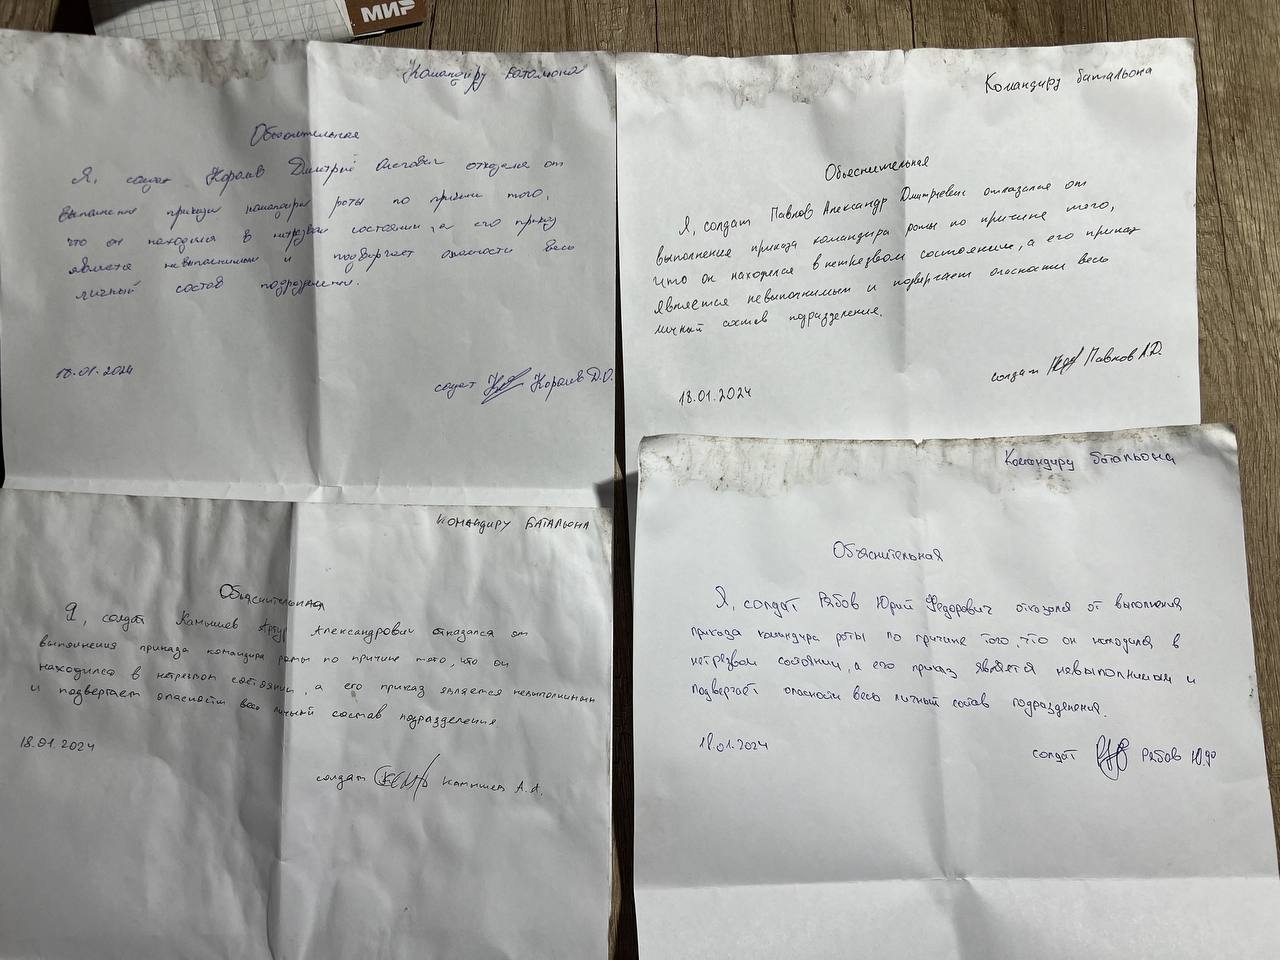 МИР
Командиру батальона
Объяснительная
Я, солдат Королев Дмитрий Олегович отказался от
выполнения приказа командира роты по причине того,
что он находился в нетрезвом состоянии, а его приказ
является невыполнимым и подвергает опасности весь
личный состав подразделения.
18.01.2024
солдат Королев Д.О.
Командиру батальона
Обьеснительная
Я, солдат Павлов Александр Дмитриевич отказался от
выполнение приказа командира роты по причине того,
что он находился в нетрезвом состоянии, а его приказ
является невыпочнимым и подвергает опасности весь
личный состав подразделения.
солдат Павлов А.Д.
18.01.2024
КОМАНДИРУ БАТАЛЬОНА
Объяснительная
Я, солдат Камышев Артур Александрович отказался от
выполнения приказа командира роты по причине того, что он
находился в нетрезвом состоянии, а его приказ является невыполнимым
и подвергает опасности весь личный состав подразделения
18.01.2024
солдат Камышев А.А.
Командиру батальона
Объяснительная
Я, солдат Рябов Юрий Федорович отказался от выполнения
приказа командира роты по причине того, что он находился в
нетрезвом состоянии, а его приказ является невыполнимым и
подвергает опасности весь личный состав подразделения.
18.01.2024
солдат Рябов Ю.Ф